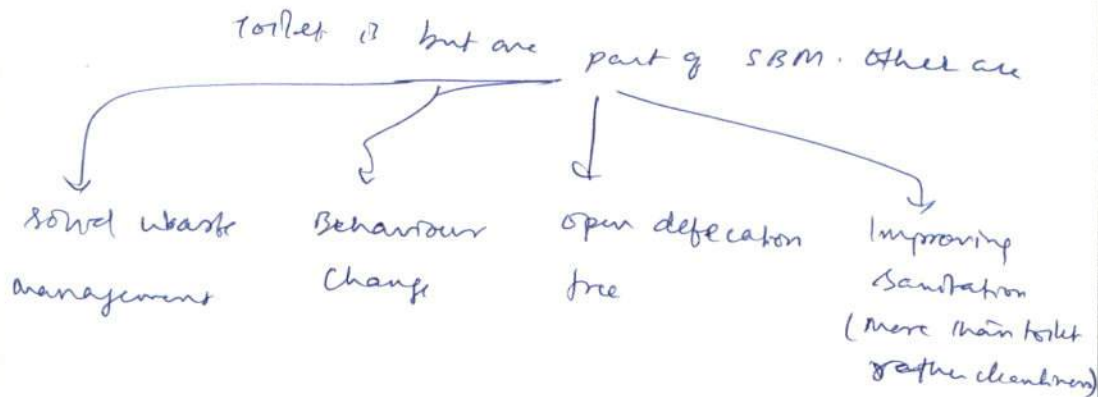 Toilet is but one part of SBM. Other are
Solid waste
management
Behaviour
Change
open defecation
free
Improving
sanitation
(more than toilet
rather cleanliness)